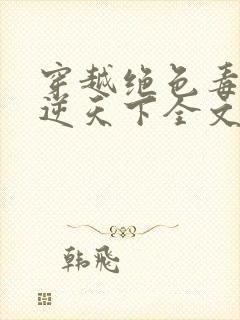 穿越绝色毒
逆天下全文
韩飞